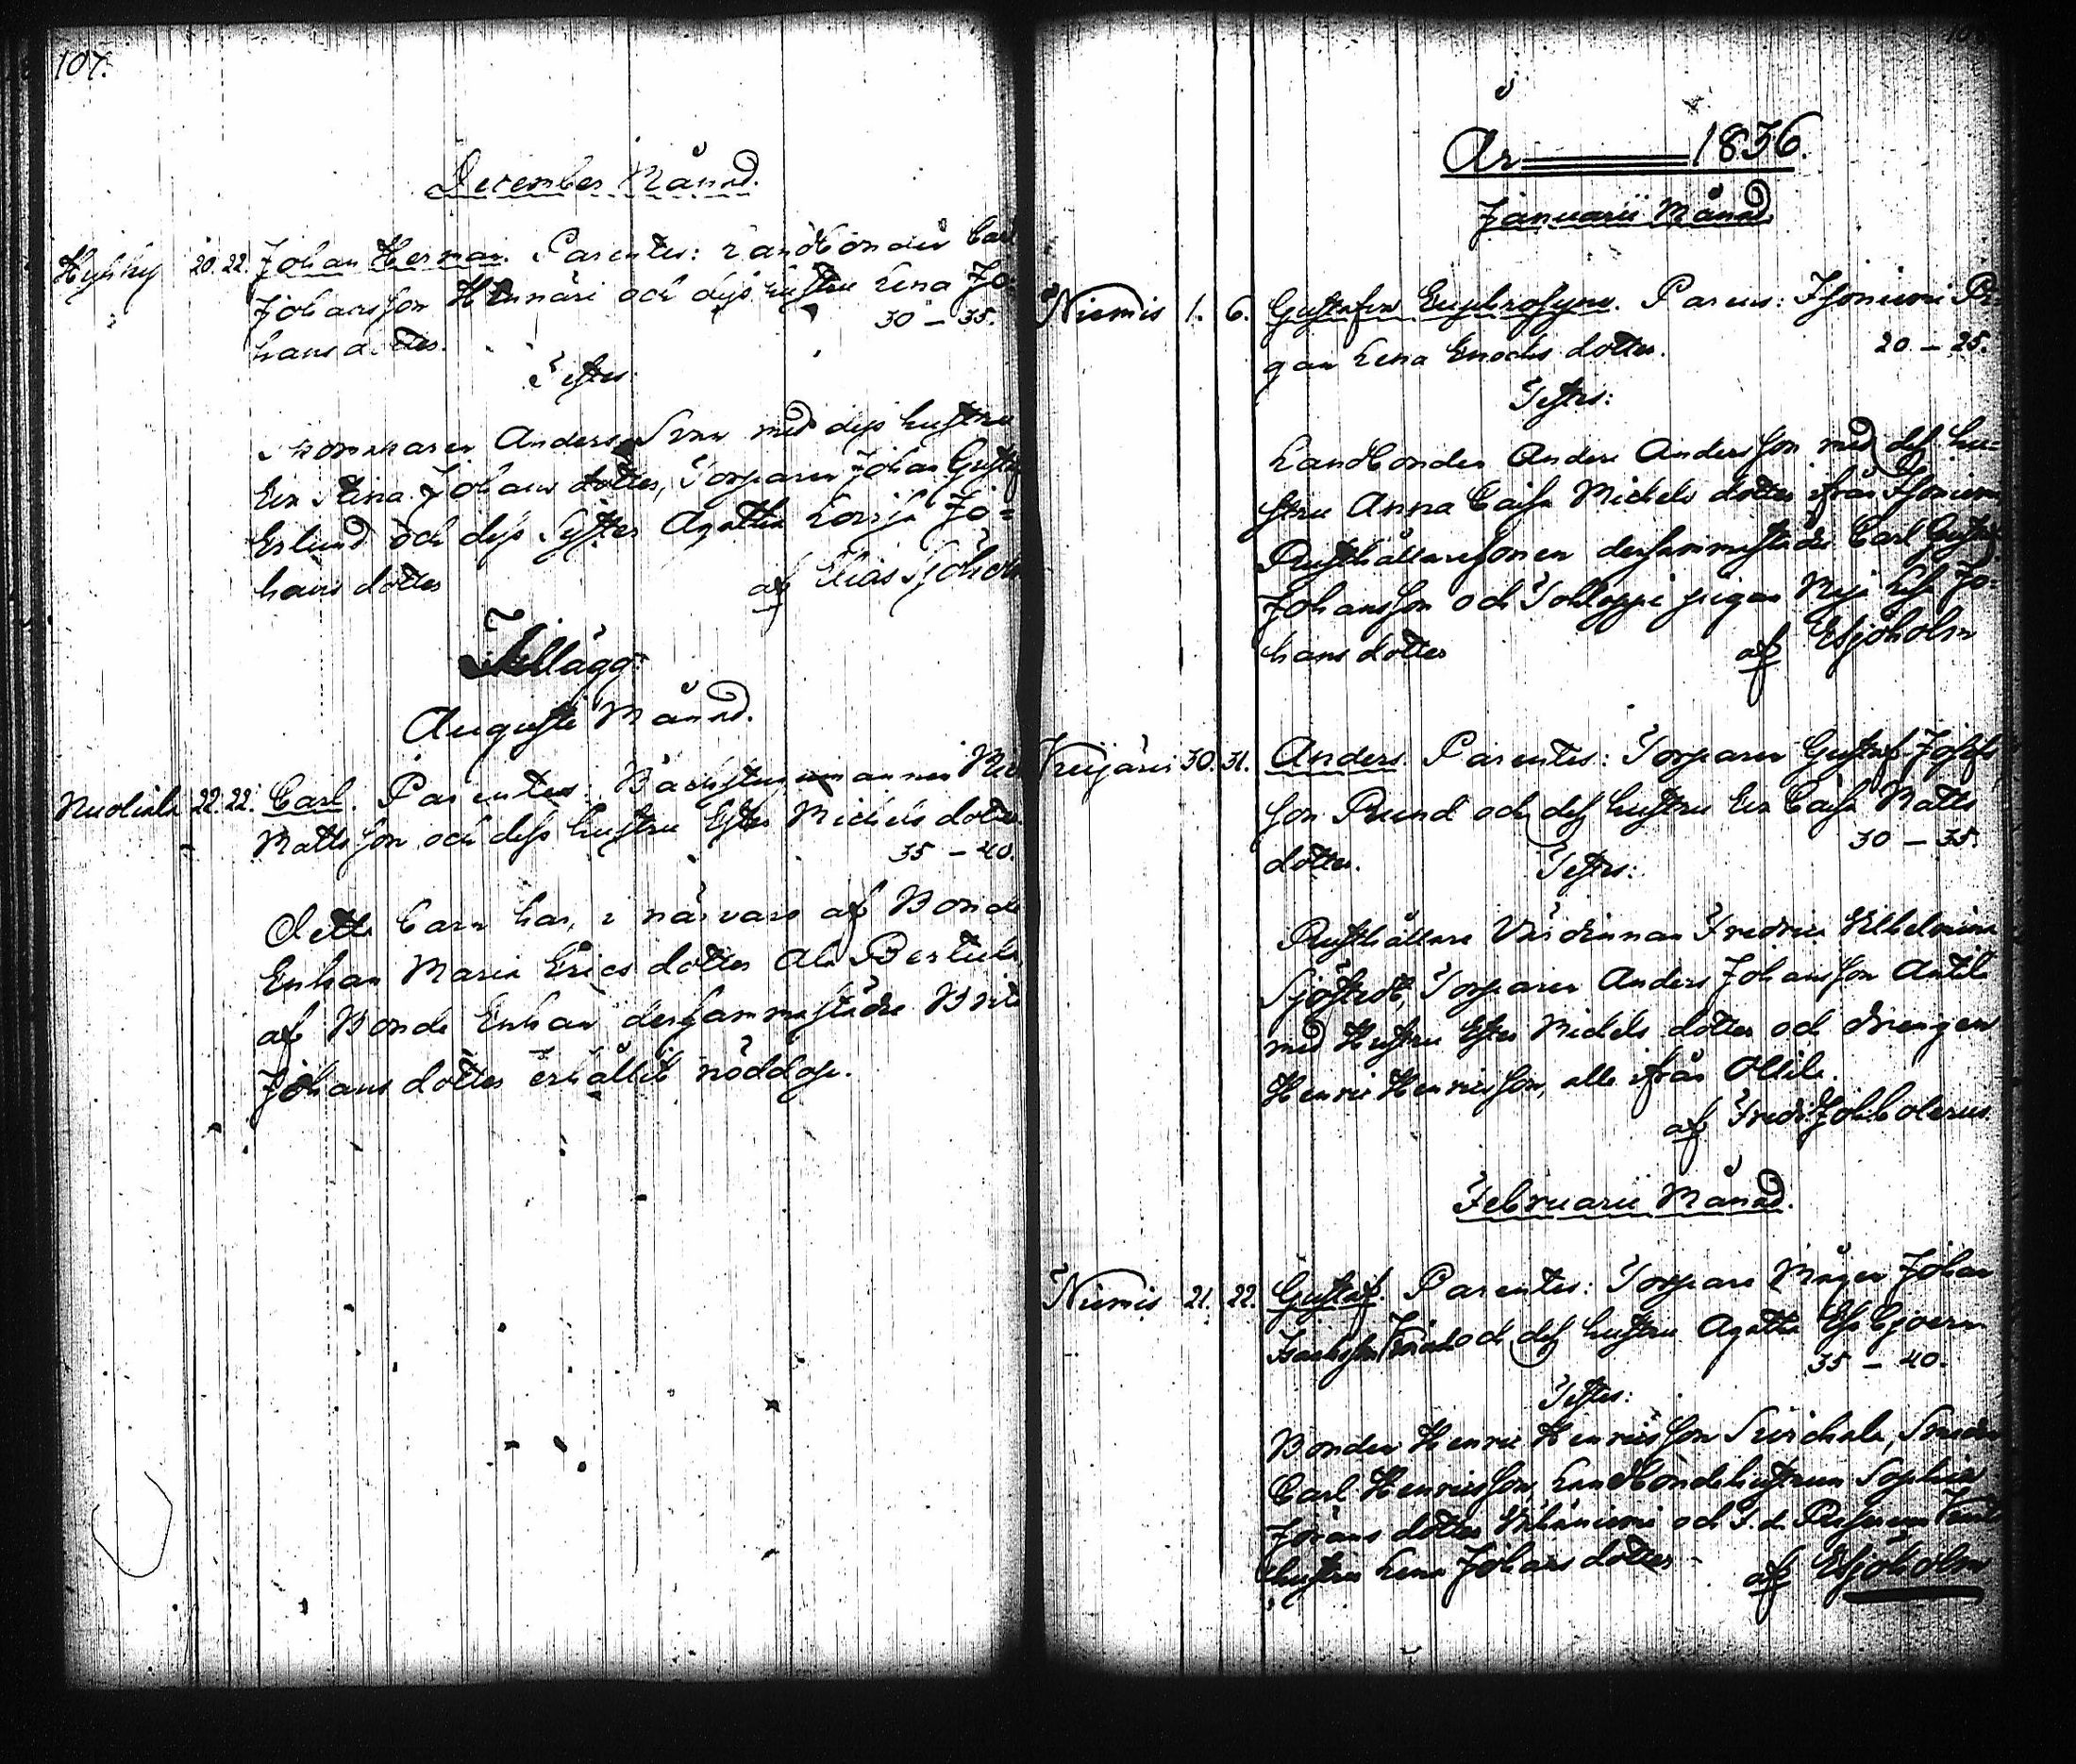 107.
December Månad.
20. 22. Johan Herman. Parentes: Landbonden Carl
Johansson och dess hustru Lena Jo-
hansdotter.
30 – 35.
Testes:
Anders Svan med dess hustru
Eva Stina Johansdotter, Torparen Johan Gustaf
Erlund och dess Syster Agatha Lovisa Jo=
hansdotter
af Elias Sjöholm
Tillägg.
Augusti Månad.
Nuoliala 22. 22. Carl. Parentes:
Mattsson och dess hustru Ester Michelsdotter
35 – 40.
Detta barn har, i närvaro af Bonde
Enkan Maria Ericsdotter Ala Bertula
af Bonde Enkan dersammastädes Brita
Johansdotter erhållit nöddop.
År 1836.
Januarii Månad.
Niemis 1. 6. Gustafva Euphrosyne. Parens: Isoniemi Pi-
gan Lena Enochsdotter.
20 – 25.
Testes:
Landbonden Anders Andersson med dess hu-
stru Anna Caisa Michelsdotter ifrån Isoniemi
Rusthållaresonen dersammastädes Carl Gustaf
Johansson och pigan Maja Lisa Jo-
hansdotter
af ESjöholm
30. 31. Anders. Parentes: Torparen Gustaf Josefs
son Rund och dess hustru Eva Caisa Matts
dotter.
30 – 35.
Testes:
Rusthållare Värdinnan Fredrica Wilhelmina
Sjöstedt, Torparen Anders Johansson Antila
med Hustru Ester Michelsdotter och drengen
Henric Henricsson, alla ifrån Ollila.
af Fredr. Joh. Colerus.
Februarii Månad.
Niemis 21. 22. Gustaf. Parentes: Torpare Mågen Johan
Isacksson och dess hustru Agatha
35 – 40.
Testes:
Bonden Henric Henricsson Smeden
Carl Henricsson, Landbondehustrun Sophia
Göransdotter och
hustru Lena Johansdotter
af ESjöholm